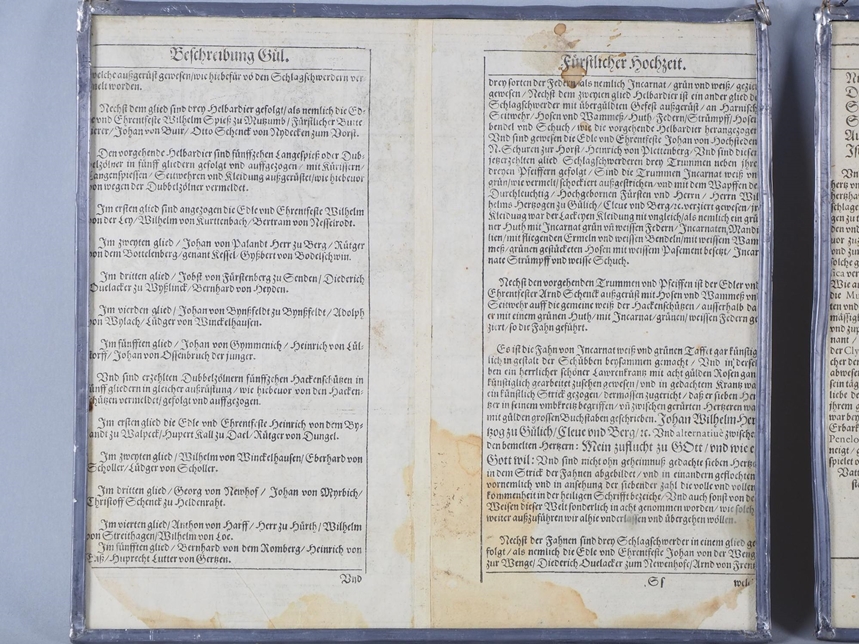 Beschreibung Gül.
welche außgerüst gewesen/wie hiebefür võ den Schlagschwerdern ver
melt worden.
Nechst dem glied sind drey Helbardier gefolgt/als nemlich die Ed-
vnd Ehrenfeste Wilhelm Spieß zu Fürstlicher
Johan von Buir/ Otto Schenck von Nydecken zum Vorst.
Den vorgehende Helbardier sind fünffzehen Langespieß oder Dub-
belzölner in fünff gliedern gefolgt vnd auffgezogen/ mit Kürissern
Langenspiessen/ Seitwehren vnd Kleidung außgerüstet/wie hiebeuor
von wegen der Dubbelzölner vermeldet.
Im ersten glied sind angezogen die Edle vnd Ehrenfeste Wilhelm
von der Ley/Wilhelm von Kurttenbach/Bertram von Nesselrodt.
Im zweyten glied / Johan von Palandt Herr zu Berg/ Rütger
von dem Bottelenberg/genant Kessel/ Gyßbert von Bodelschwin.
Im dritten glied/ Jobst von Fürstenberg zu Senden/ Diederich
Ouelacker zu Wyßlinck/Bernhard von Heyden.
Im vierden glied/ Johan von Bynßfeldt zu Bynßfeldt/ Adolph
von Wylach/ Lüdger von Winckelhausen.
Im fünfften glied / Johan von Gymmenich/ Heinrich von Lül-
storff/ Johan von Ossenbruch der junger.
Vnd sind erzehlten Dubbelzölnern fünffzehen Hackenschützen in
fünff gliedern in gleicher außrüstung/ wie hiebeuor von den Hacken-
schützen vermeldet/gefolgt vnd auffgezogen.
Im ersten glied die Edle vnd Ehrenfeste Heinrich von dem Bys-
andt zu Walpeck/Hupert Kall zu Dael/ Rütger von Dungel.
Im zweyten glied/Wilhelm von Winckelhausen/ Eberhard von
Scholler/ Lüdger von Scholler.
Im dritten glied/ Georg von Newhof / Johan von Myrbich/
Christoff Schenck zu Heldenraht.
Im vierten glied/ Anthon von Harff/ Herr zu Hürth/ Wilhelm
von Streithagen/Wilhelm von Loe.
Im fünfften glied / Bernhard von dem Romberg/ Heinrich von
Huprecht Lutter von Gertzen.
Vnd
Fürstlicher Hochzeit.
drey sorten der Federn/als nemlich Incarnat / grün vnd weiß/ gezie
gewesen / Nechst dem zweyten glied Helbardier ist ein ander glied de
Schlagschwerder mit übergülten Gefest außgerüst/ an Harnisch
Seitwehr/ Hosen vnd Wammeß/ Huth/ Federn/Strümpff/Hosen
bendel vnd Schuch/ wie die vorgehende Helbardier herangezogen
Vnd sind gewesen die Edle vnd Ehrenfeste Johan von Hochsteden
N. Schuren zur Horst/Heinrich von Plettenberg/ Vnd sind dieser
jetzerzehlten glied Schlagschwerderen drey Trummen neben ihre
dreyen Pfeiffern gefolgt / Sind die Trummen Incarnat weiß vn
grün/wie vermelt/schockiert außgestrichen/ vnd mit dem Wapffen de
Durchleuchtig / Hochgebornen Fürsten vnd Herrn / Herrn Wil
helms Hertzogen zu Gülich/ Cleue vnd Berg/ꝛc. verziert gewesen/ jr
Kleidung war der Lackeyen Kleidung nit vngleich/als nemlich ein grü
ner Huth mit Incarnat grün vñ weissen Federn/ Incarnaten Mandi
lien/mit fliegenden Ermeln vnd weissen Bendeln/mit weissem Wam
meß/ grünen gefückten Hosen mit weissem Pasement besetzt/ Incar
nate Strümpff vnd weisse Schuch.
Nechst den vorgehenden Trummen vnd Pfeiffen ist der Edler vn
Ehrenfester Arnd Schenck außgerüst mit Hosen vnd Wammeß vn
Seitwehr auff die gemeine weiß der Hackenschützen / ausserhalb da
er mit einem grünen Huth/ mit Incarnat/grünen/weissen Federn ge
ziert/ so die Fahn geführt.
Es ist die Fahn von Incarnat weiß vnd grünen Taffet gar künstig
lich in gestalt der Schübben beysammen gemacht / Vnd in dersel
ben ein herrlicher schöner Lawrenkrantz mit acht gülden Rosen gan
künstiglich gearbeitet zusehen gewesen/ vnd in gedachtem Krantz wa
ein künstlich Strick gezogen/ dermassen zugericht/ daß er sieben Her
tzer in seinem vmbkreitz begriffen/ vñ zwischen gerürten Hertzeren wa
mit gülden grossen Buchstaben geschrieben. Johan Wilhelm Her
tzog zu Gülich/ Cleue vnd Berg/ꝛc. Vnd alternatiuè zwische
den bemelten Hertzern: Mein zuflucht zu GOtt / vnd wie e
Gott wil: Vnd sind nicht ohn geheimnuß gedachte sieben Hertze
in dem Strick der Fahnen abgebildet / vnd in einanderen geflochten
vornemlich vnd in ansehung der siebender zahl die volle vnd vollen
kommenheit in der heiligen Schrifft bezeichet/ Vnd auch sonst von de
Weisen dieser Welt sonderlich in acht genommen worden/ wie solch
weiter außzuführen wir alhie vnderlassen vnd übergehen wöllen.
Nechst der Fahnen sind drey Schlagschwerder in einem glied ge
folgt / als nemlich die Edle vnd Ehrenfeste Johan von der Weng
zur Wenge/ Diederich Ouelacker zum Newenhofe/Arnd von Fren
Sf